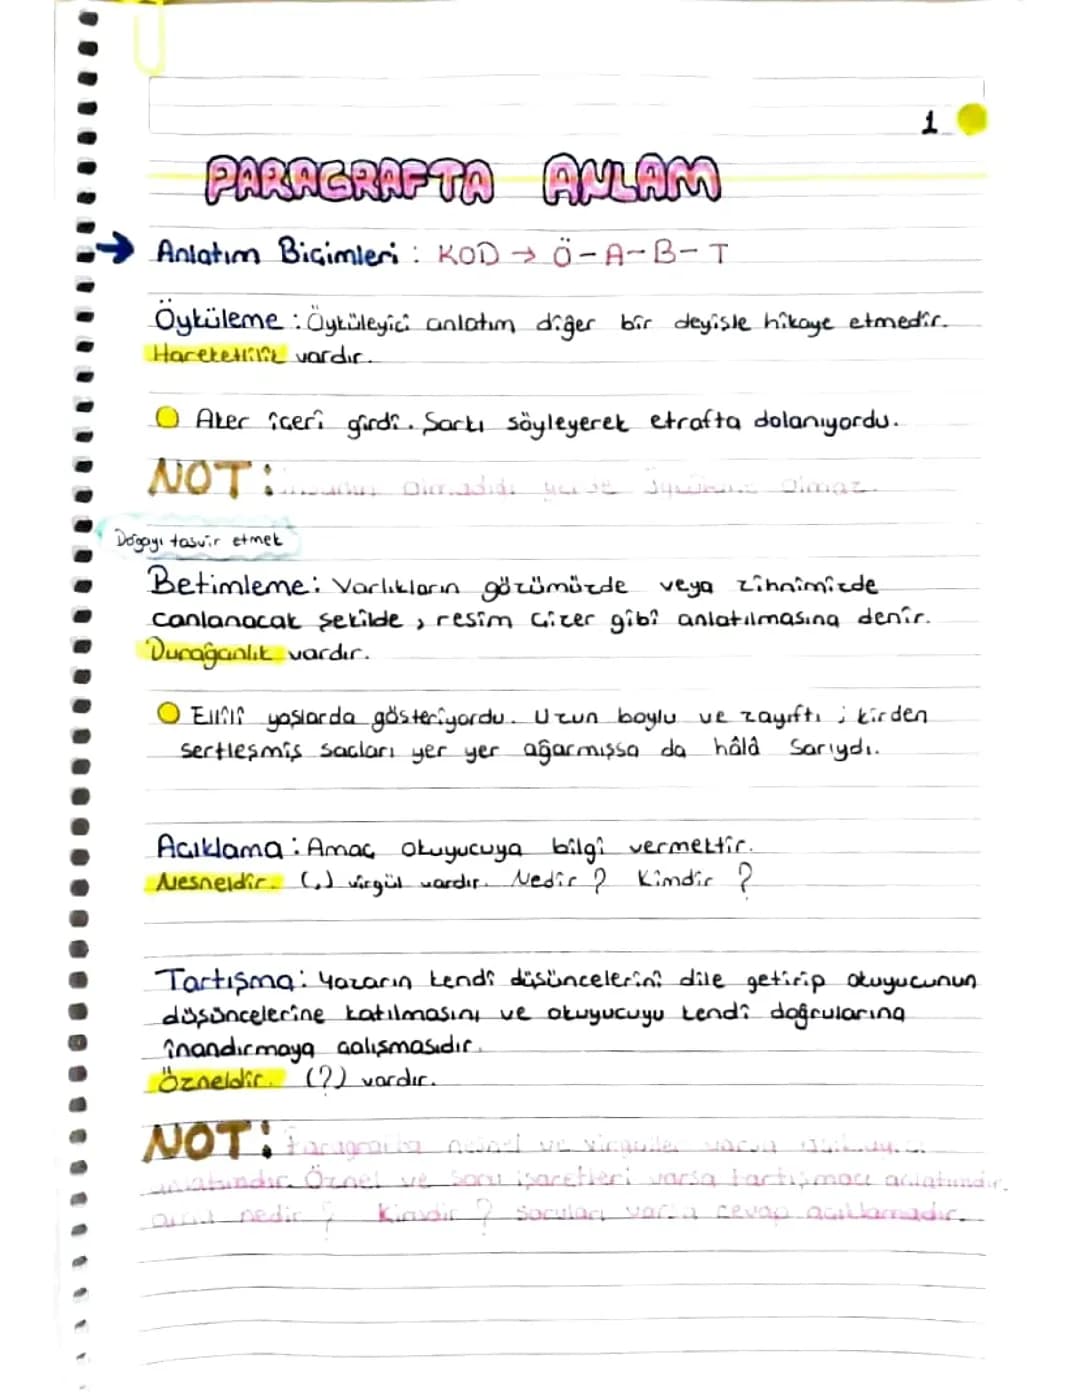 1
PARAGRAFTA ANLAM
→ Anlatım Biçimleri : KOD → Ö-A-B-T
Öyküleme : Öyküleyici anlatım diğer bir deyişle hikaye etmedir.
Hareketlilik vardır.
Aker içeri girdi. Şarkı söyleyerek etrafta dolanıyordu.
NOT: olmadığı yerde öyküleme olmaz.
Doğayı tasvir etmek
Betimleme : Varlıkların gözümüzde veya zihnimizde
canlanacak şekilde, resim çizer gibi anlatılmasına denir.
Durağanlık vardır.
Ellili yaşlarda gösteriyordu. Uzun boylu ve zayıftı ; kirden
sertleşmiş saçları yer yer ağarmışsa da hâlâ sarıydı.
Açıklama : Amaç okuyucuya bilgi vermektir.
Nesneldir. (,) virgül vardır. Nedir ? Kimdir ?
Tartışma : Yazarın kendi düşüncelerini dile getirip okuyucunun
düşüncelerine katılmasını ve okuyucuyu kendi doğrularına
inandırmaya çalışmasıdır.
Özneldir. (?) vardır.
NOT: Paragrafta nesnel ve virgüller varsa
anlatımdır. Öznel ve soru işaretleri varsa tartışmacı anlatımdır.
nedir ? Kimdir ? soruları varsa cevap açıklamadır.